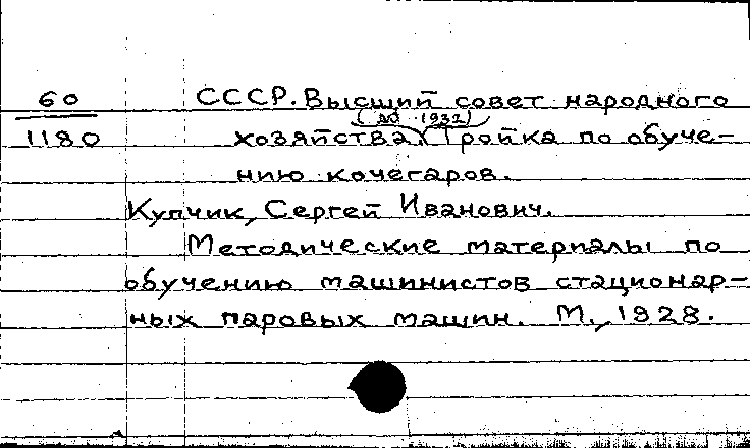 60
1180
СССР. Высший совет народного
(до 1932)
хозяйства. Тройка по обуче-
нию кочегаров.
Купчик, Сергей Иванович.
Методические материалы по
обучению машинистов стационар-
ных паровых машин. М., 1928.